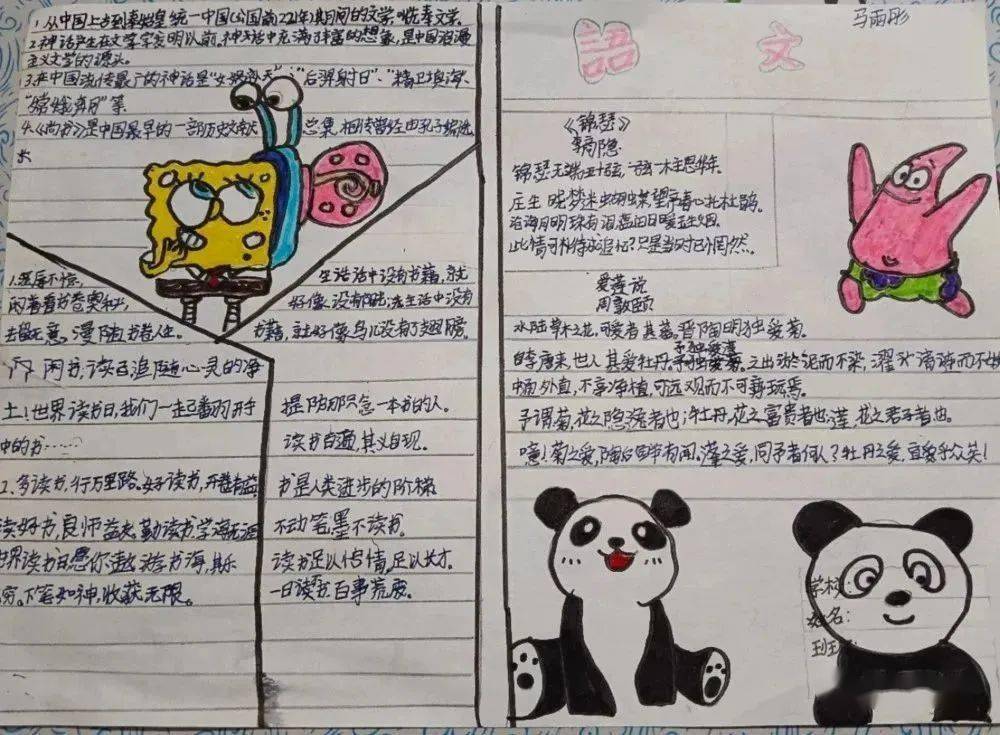 1.从中国上古到秦始皇统一中国(公国前221年)期间的文学,先秦文学.
2.神话产生在文学字发明以前.神话中充满了丰富的想象,是中国浪漫
主义文学的源头。
3.在中国流传最广的神话是"女娲补天"、"后羿射日"、"精卫填海"
"嫦娥奔月"等.
4.《尚书》是中国最早的一部历史文献 总集,相传曾经由孔子编选
1.宠辱不惊,
闲着看书卷奥秘;
去留无意。漫随书卷人生。
闲书,读百追随心灵的净
土!世界读书日,我们一起翻开手
中的书……
2.多读书,行万里路。好读书,开卷有益,
读好书,良师益友.勤读书,学海无涯
世界读书日愿你遨游书海,其乐
穷。下笔如神,收获无限。
生活话中没有书籍,就
好像没有阳光;生活中没有
书籍,就好像鸟儿没有了翅膀.
提防那只念一本书的人.
读书百遍,其义自现.
书是人类进步的阶梯
不动笔墨不读书.
读书足以怡情,足以长才.
一日读书,百事荒废.
語文
马雨彤
《锦瑟》
李商隐
锦瑟无端五十弦,一弦一木主思华年.
庄生晓梦迷蝴蝶望帝春心托杜鹃.
沧海月明珠有泪,蓝田日暖玉生烟.
此情可待成追忆?只是当时已惘然.
爱莲说
周敦颐
水陆草木之花,可爱者甚蕃.晋陶明独爱菊.
予独爱莲
自李唐来,世人甚爱牡丹.之出淤泥而不染,濯清涟而不妖
中通外直,不享净植,可远观而不可亵玩焉.
予谓菊,花之隐逸者也;牡丹,花之富贵者也,莲,花之君子者也.
噫!菊之爱,陶后鲜有闻,莲之爱,同予者何人?牡丹之爱,宜乎众矣!
学校:
姓名:
班